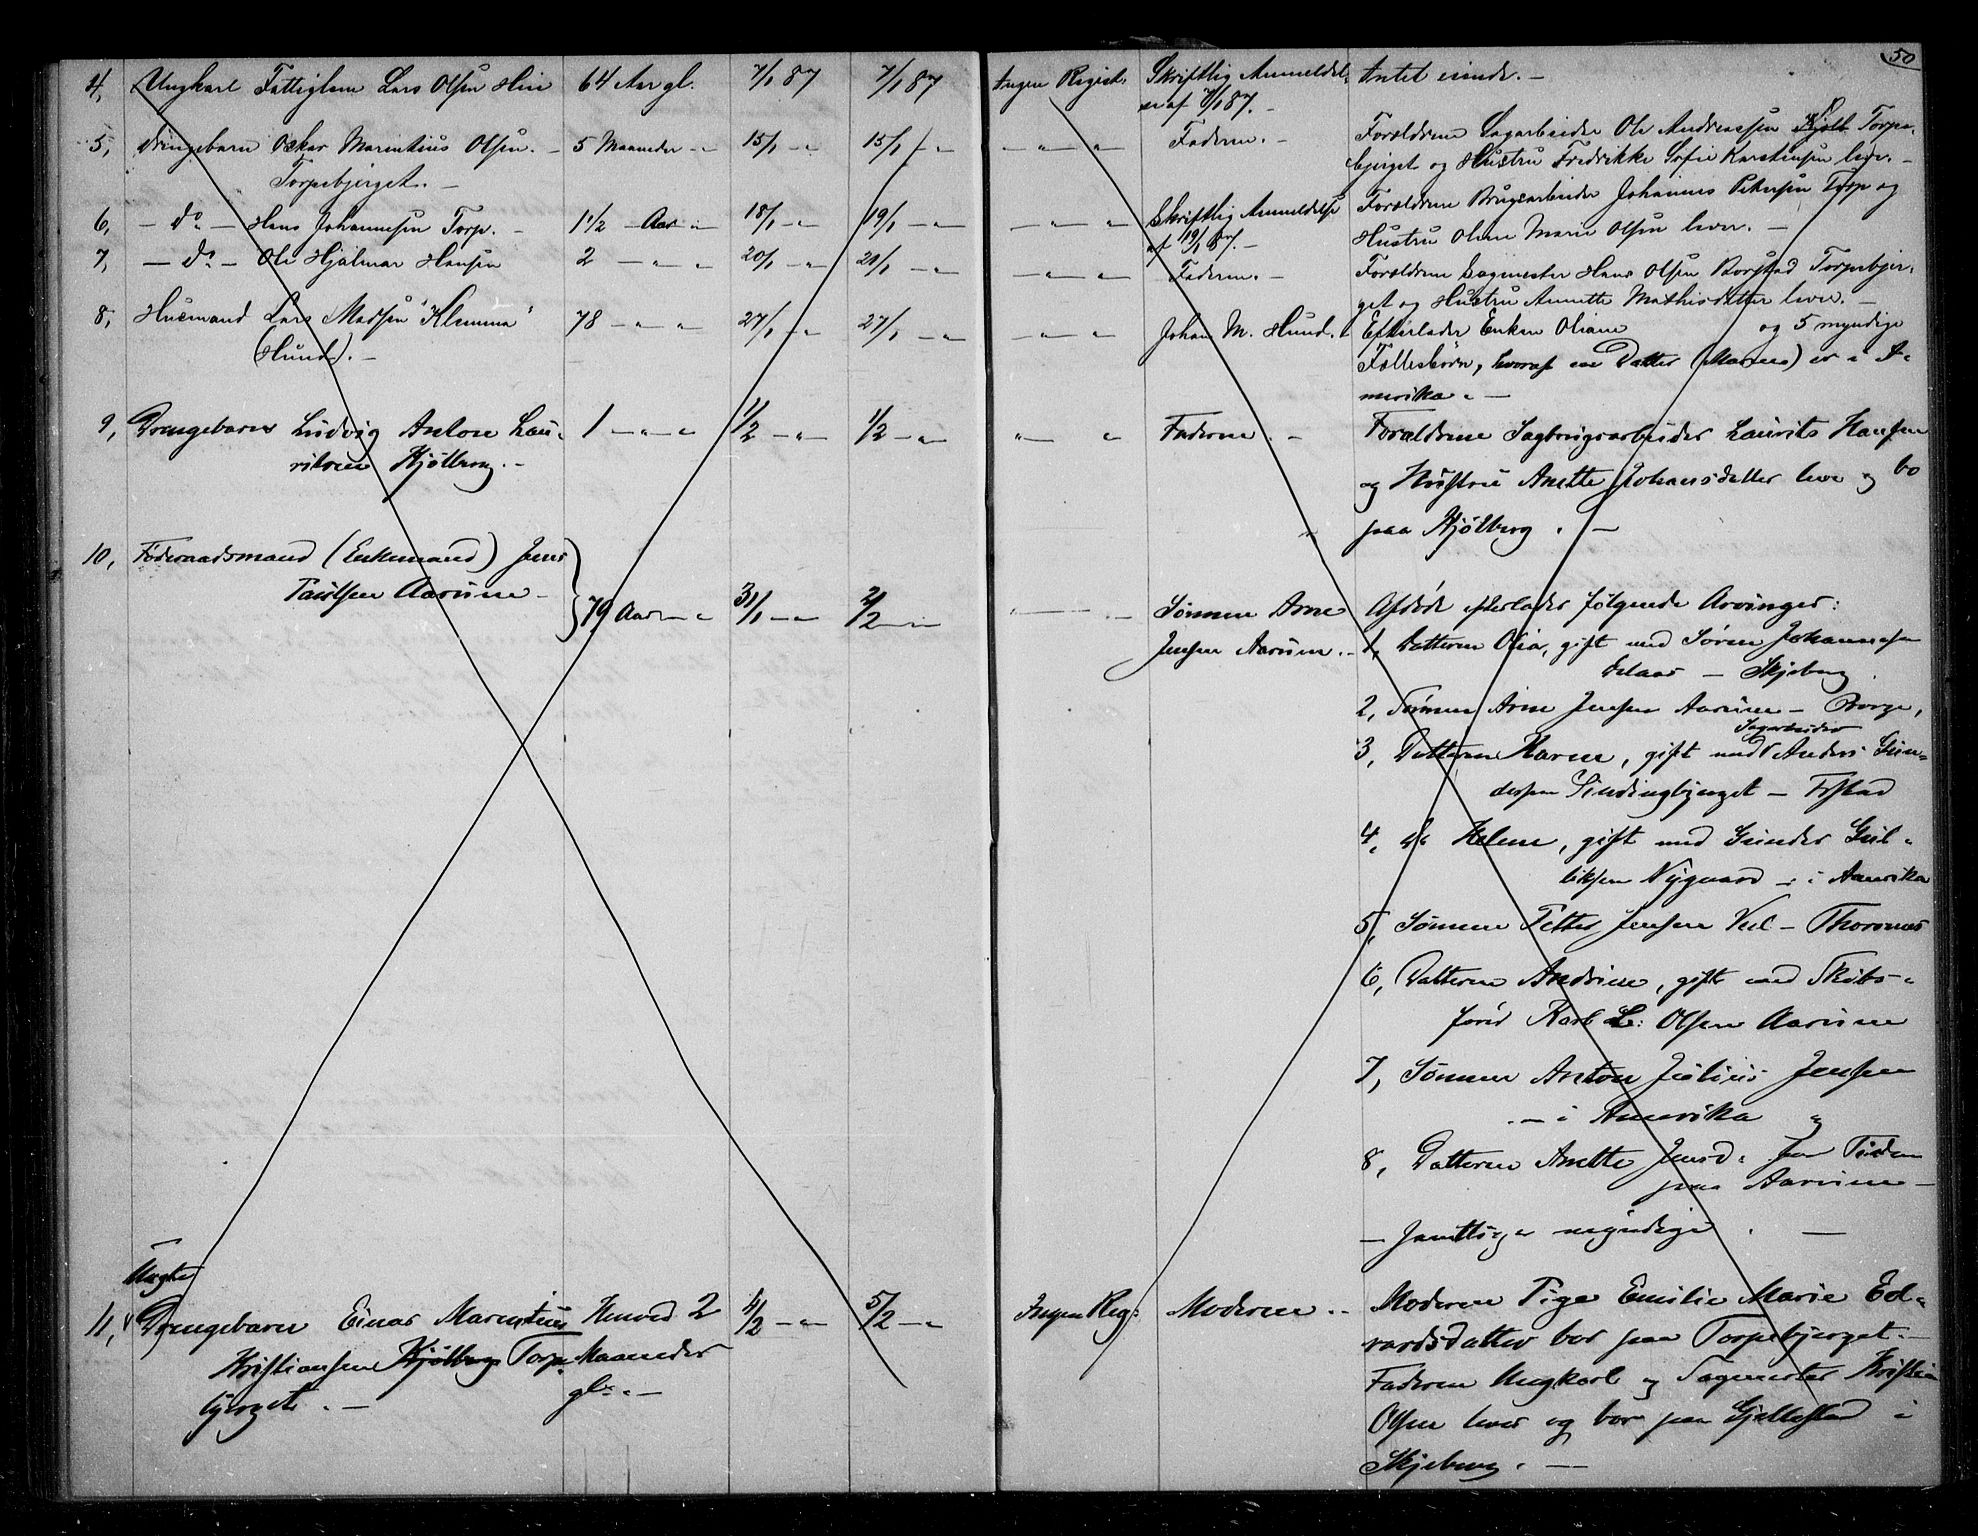 50
4, Ungkarl Fattiglem Lars Olsen Hun 64 Aar gl. 7/1 87 7/1 87 Ingen Regist. Skriftlig Anmeldel- Intet eiende. -
se af 7/1 87. -
5, Drengebarn Oskar Marentius Olsen. - 5 Maaneder - " 15/1 - " 15/1 - " - " - " Faderen. - Forældrene Sagarbeider Ole Andreassen Kjølb Torpe-
Torpebjerget. - bjerget og Hustru Fredrikke Sofie Karstensen lever. -
6, - do - Hans Johannesen Torp. - 1 1/2 - Aar " 18/1 - " 19/1 - " - " - " Skriftlig Anmeldelse Forældrene Brugsarbeider Johannes Petersen Torp og
af 19/1 87. - Hustru Oline Marie Olsen lever. -
7, - do - Ole Hjalmar Hansen 2 - " - " 20/1 - " 21/1 - " - " - " Faderen. - Forældrene Sagmester Hans Olsen Borstad Torpebjer-
get og Hustru Annette Mathisdatter lever. -
8, Husmand Lars Madsen "Klemma" 78 - " - " 27/1 - " 27/1 - " - " - " Johan M. Hund. - Efterlader Enken Oliane og 5 myndige
(Hund). - Fællesbørn, hvoraf en Datter (Maren) er i A-
merika. -
9, Drengebarn Ludvig Anton Lau- 1 - " - " 1/2 - " 1/2 - " " - " Faderen. - Forældrene Sagbrugsarbeider Laurits Hansen
ritsen Kjølberg. - og Hustru Anette Johansdatter leve og bo
paa Kjølberg. -
10, Föderaadsmand (Enkemand) Jens
Paulsen Aarum - 79 Aar - " 31/1 - " 2/2 - " " - Sønnen Arne Afdøde efterlader følgende Arvinger:
Jensen Aarum. - 1, Datteren Olia, gift med Søren Johannesen
- Skjeberg.
2, Sønnen Arne Jensen Aarum - Borge,
Sagarbeider
3, Datteren Karen, gift med Anders Gun-
dersen - Id­stad
4, do Helene, gift med Gunder Gul-
liksen Nygaard - i Amerika
5, Sønnen Petter Jensen Veel - Thorsnæs
6, Datteren Andrine, gift med Skibs-
förer Karl L: Olsen Aarum
7, Sønnen Anton Julius Jensen
- i Amerika "
8, Datteren Anette Jensd. for Tiden
paa Aarum -
- Samtlige myndige. -
Uægte
11, Drengebarn Einar Marentius Henved 2 4/2 - " 5/2 - " Ingen Reg: Moderen. - Moderen Pige Emilie Marie Ed-
Kristiansen Kjølberg Torpe- Maaneder vardsdatter bor paa Torpebjerget. -
bjerget. - gl. - Faderen Ungkarl og Sagmester Kristian
Olsen lever og bor paa Gjellestad i
Skjeberg. -